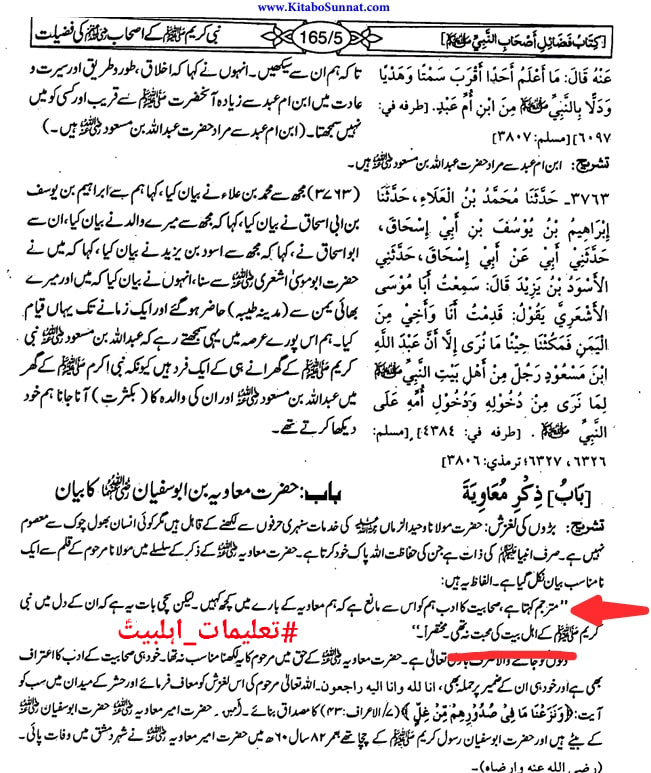 www.KitaboSunnat.com
[كِتَابُ فَضَائِلِ أَصْحَابِ النَّبِيِّ ﷺ]
165/5
نبی کریم ﷺ کے اصحاب ؓ کی فضیلت
عَنْهُ قَالَ: مَا أَعْلَمُ أَحَدًا أَقْرَبَ سَمْتًا وَهَدْيًا
وَدَلًّا بِالنَّبِيِّ ﷺ مِنَ ابْنِ أُمِّ عَبْدٍ. [طرفه في:
٦٠٩٧] [مسلم: ٣٨٠٧]
تا کہ ہم ان سے سیکھیں۔ انہوں نے کہا کہ اخلاق، طور و طریق اور سیرت و
عادت میں ابن ام عبد سے زیادہ آنحضرت ﷺ سے قریب اور کسی کو میں
نہیں سمجھتا۔ (ابن ام عبد سے مراد حضرت عبداللہ بن مسعود ؓ ہیں۔)
تشریح: ابن ام عبد سے مراد حضرت عبداللہ بن مسعود ؓ ہیں۔
٣٧٦٣۔ حَدَّثَنَا مُحَمَّدُ بْنُ الْعَلَاءِ، حَدَّثَنَا
إِبْرَاهِيمُ بْنُ يُوسُفَ بْنِ أَبِي إِسْحَاقَ،
حَدَّثَنِي أَبِي عَنْ أَبِي إِسْحَاقَ، حَدَّثَنِي
الْأَسْوَدُ بْنُ يَزِيْدَ قَالَ: سَمِعْتُ أَبَا مُوْسَى
الْأَشْعَرِيَّ يَقُوْلُ: قَدِمْتُ أَنَا وَأَخِيْ مِنَ
الْيَمَنِ فَمَكَثْنَا حِيْنًا مَا نَرَى إِلَّا أَنَّ عَبْدَ اللَّهِ
ابْنَ مَسْعُوْدٍ رَجُلٌ مِنْ أَهْلِ بَيْتِ النَّبِيِّ ﷺ
لِمَا نَرَى مِنْ دُخُوْلِهِ وَدُخُوْلِ أُمِّهِ عَلَى
النَّبِيِّ ﷺ. [طرفه في: ٤٣٨٤] [مسلم:
٦٣٢٦، ٦٣٢٧؛ ترمذي: ٣٨٠٦]
(۳۷۶۳) مجھ سے محمد بن علاء نے بیان کیا، کہا ہم سے ابراہیم بن یوسف
بن ابی اسحاق نے بیان کیا، کہا کہ مجھ سے میرے والد نے بیان کیا، ان سے
ابو اسحاق نے، کہا کہ مجھ سے اسود بن یزید نے بیان کیا، کہا کہ میں نے
حضرت ابوموسیٰ اشعری ؓ سے سنا، انہوں نے بیان کیا کہ میں اور میرے
بھائی یمن سے (مدینہ طیبہ) حاضر ہو گئے اور ایک زمانے تک یہاں قیام
کیا۔ ہم اس پورے عرصہ میں یہی سمجھتے رہے کہ عبداللہ بن مسعود ؓ نبی
کریم ﷺ کے گھرانے ہی کے ایک فرد ہیں کیونکہ نبی اکرم ﷺ کے گھر
میں عبداللہ بن مسعود ؓ اور ان کی والدہ کا (بکثرت) آنا جانا ہم خود
دیکھا کرتے تھے۔
[بَابُ] ذِكْرِ مُعَاوِيَةَ
باب: حضرت معاویہ بن ابوسفیان ؓ کا بیان
تشریح: بڑوں کی لغزش: حضرت مولانا وحید الزماں کی خدمات سنہری حرفوں سے لکھنے کے قابل ہیں مگر کوئی انسان بھول چوک سے معصوم
نہیں ہے۔ صرف انبیا کی ذات ہے جن کی حفاظت اللہ پاک خود کرتا ہے۔ حضرت معاویہ ؓ کے ذکر کے سلسلے میں مولانا مرحوم کے قلم سے ایک
نا مناسب بیان نکل گیا ہے۔ الفاظ یہ ہیں:
"مترجم کہتا ہے، صحابیت کا ادب ہم کو اس سے مانع ہے کہ ہم معاویہ کے بارے میں کچھ کہیں۔ لیکن سچی بات یہ ہے کہ ان کے دل میں نبی
کریم ﷺ کے اہل بیت کی محبت نہ تھی۔ مختصراً۔"
#تعلیمات_اہلبیتؑ
دلوں کو جاننے والا صرف باری تعالیٰ ہے۔ حضرت معاویہ ؓ کے حق میں مرحوم کا یہ لکھنا مناسب نہ تھا۔ خود ہی صحابیت کے ادب کا اعتراف
بھی ہے اور خود ہی ان کے ضمیر پر حملہ بھی، انا لله وانا اليه راجعون۔ اللہ تعالیٰ مرحوم کی اس لغزش کو معاف فرمائے اور حشر کے میدان میں سب کو
آیت: ﴿وَنَزَعْنَا مَا فِي صُدُوْرِهِمْ مِّنْ غِلٍّ﴾ (۷/الاعراف: ۴۳) کا مصداق بنائے۔ آمین۔ حضرت امیر معاویہ ؓ حضرت ابوسفیان ؓ
کے بیٹے ہیں اور حضرت ابوسفیان رسول کریم ﷺ کے چچا تھے بعمر ۸۲ سال ۶۰ھ میں حضرت امیر معاویہ ؓ نے شہر دمشق میں وفات پائی۔
(رضی الله عنه وارضاه)۔